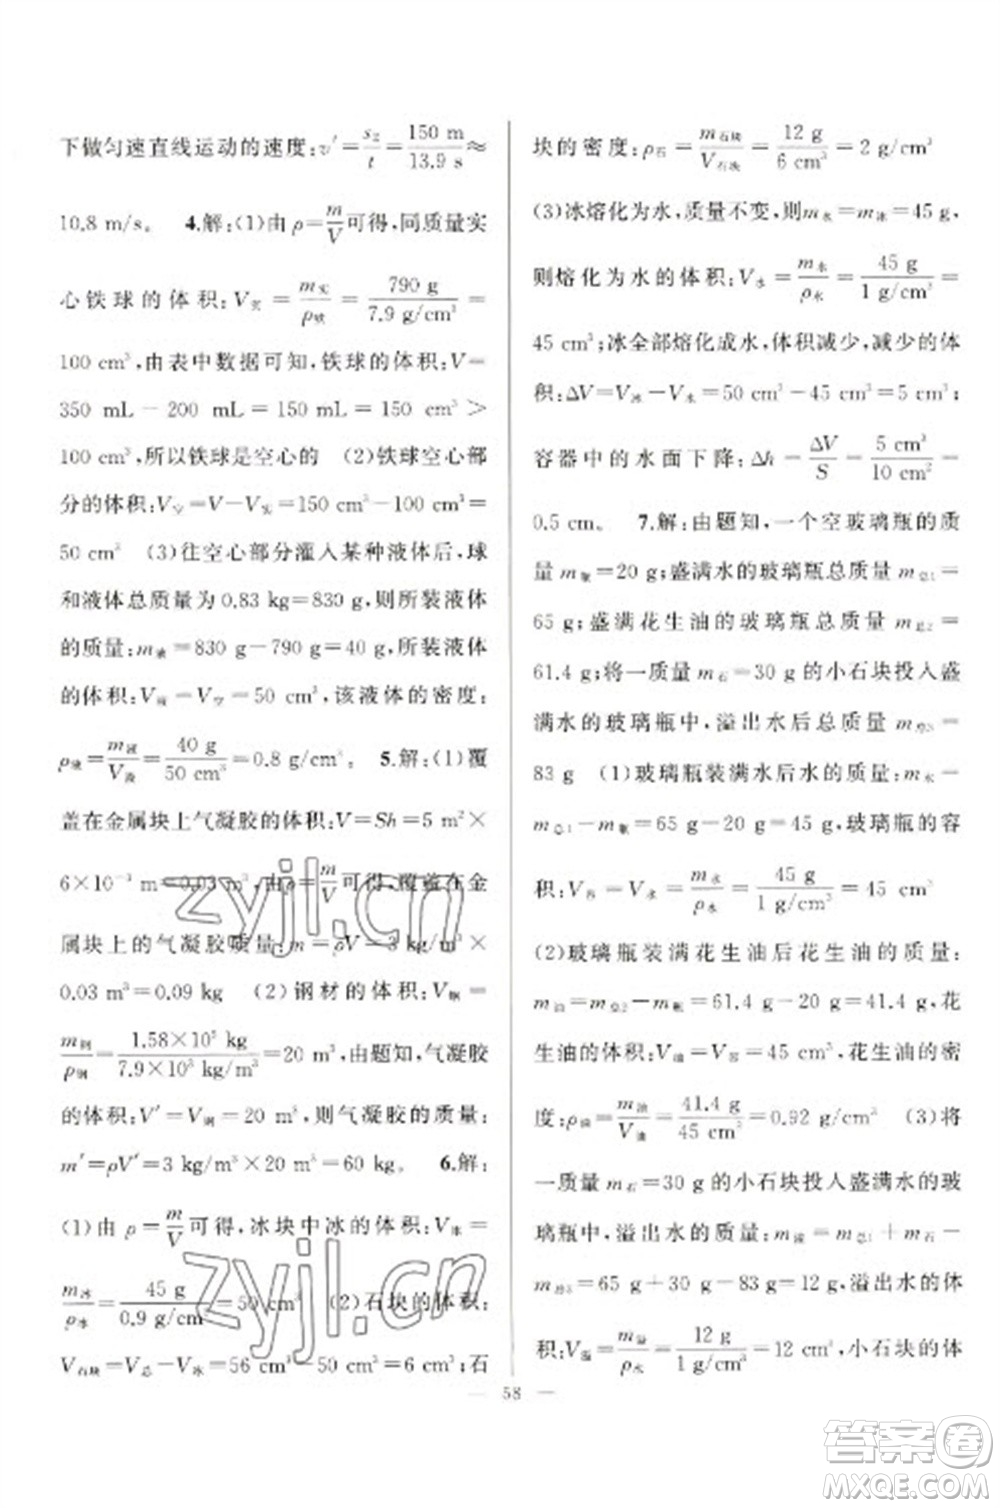 下做匀速直线运动的速度:v′=s₂/t=150 m/13.9 s≈
10.8 m/s。 4.解:(1)由 ρ=m/V可得,同质量实
心铁球的体积:V实=m实/ρ铁=790 g/7.9 g/cm³=
100 cm³,由表中数据可知,铁球的体积:V=
350 mL-200 mL=150 mL=150 cm³>
100 cm³,所以铁球是空心的 (2)铁球空心部
分的体积:V空=V-V实=150 cm³-100 cm³=
50 cm³ (3)往空心部分灌入某种液体后,球
和液体总质量为 0.83 kg=830 g,则所装液体
的质量:m液=830 g-790 g=40 g,所装液体
的体积:V液=V空=50 cm³,该液体的密度:
ρ液=m液/V液=40 g/50 cm³=0.8 g/cm³。 5.解:(1)覆
盖在金属块上气凝胶的体积:V=Sh=5 m²×
6×10⁻³ m=0.03 m³,由ρ=m/V可得,覆盖在金
属块上的气凝胶质量:m=ρV=3 kg/m³×
0.03 m³=0.09 kg (2)钢材的体积:V钢=
m钢/ρ钢=1.58×10⁵ kg/7.9×10³ kg/m³=20 m³,由题知,气凝胶
的体积:V′=V钢=20 m³,则气凝胶的质量:
m′=ρV′=3 kg/m³×20 m³=60 kg。 6.解:
(1)由 ρ=m/V可得,冰块中冰的体积:V冰=
m冰/ρ冰=45 g/0.9 g/cm³=50 cm³ (2)石块的体积:
V石块=V总-V冰=56 cm³-50 cm³=6 cm³;石
块的密度:ρ石=m石块/V石块=12 g/6 cm³=2 g/cm³
(3)冰熔化为水,质量不变,则m水=m冰=45 g,
则熔化为水的体积:V水=m水/ρ水=45 g/1 g/cm³=
45 cm³;冰全部熔化成水,体积减少,减少的体
积:ΔV=V冰-V水=50 cm³-45 cm³=5 cm³;
容器中的水面下降:Δh=ΔV/S=5 cm³/10 cm²=
0.5 cm。 7.解:由题知,一个空玻璃瓶的质
量 m瓶=20 g;盛满水的玻璃瓶总质量 m总1=
65 g;盛满花生油的玻璃瓶总质量 m总2=
61.4 g;将一质量 m石=30 g 的小石块投入盛
满水的玻璃瓶中,溢出水后总质量为 m总3=
83 g (1)玻璃瓶装满水后水的质量:m水=
m总1-m瓶=65 g-20 g=45 g,玻璃瓶的容
积:V容=V水=m水/ρ水=45 g/1 g/cm³=45 cm³
(2)玻璃瓶装满花生油后花生油的质量:
m油=m总2-m瓶=61.4 g-20 g=41.4 g,花
生油的体积:V油=V容=45 cm³,花生油的密
度:ρ油=m油/V油=41.4 g/45 cm³=0.92 g/cm³ (3)将
一质量 m石=30 g 的小石块投入盛满水的玻
璃瓶中,溢出水的质量:m溢=m总1+m石-
m总3=65 g+30 g-83 g=12 g,溢出水的体
积:V溢=m溢/ρ水=12 g/1 g/cm³=12 cm³,小石块的体
— 58 —
zyjl.cn
zyjl.cn
答案圈
MXQE.COM